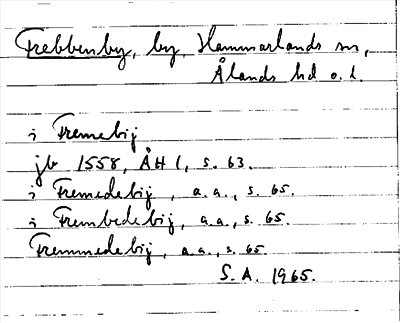 Frebbenby, by, Hammarlands sn,
Ålands hd o. l.
i Fremebij
jb 1558, ÅH 1, s. 63.
i Fremedebij, a.a., s. 65.
i Frembedebij, a.a., s. 65.
Fremmedebij, a.a., s. 65.
S. A. 1965.